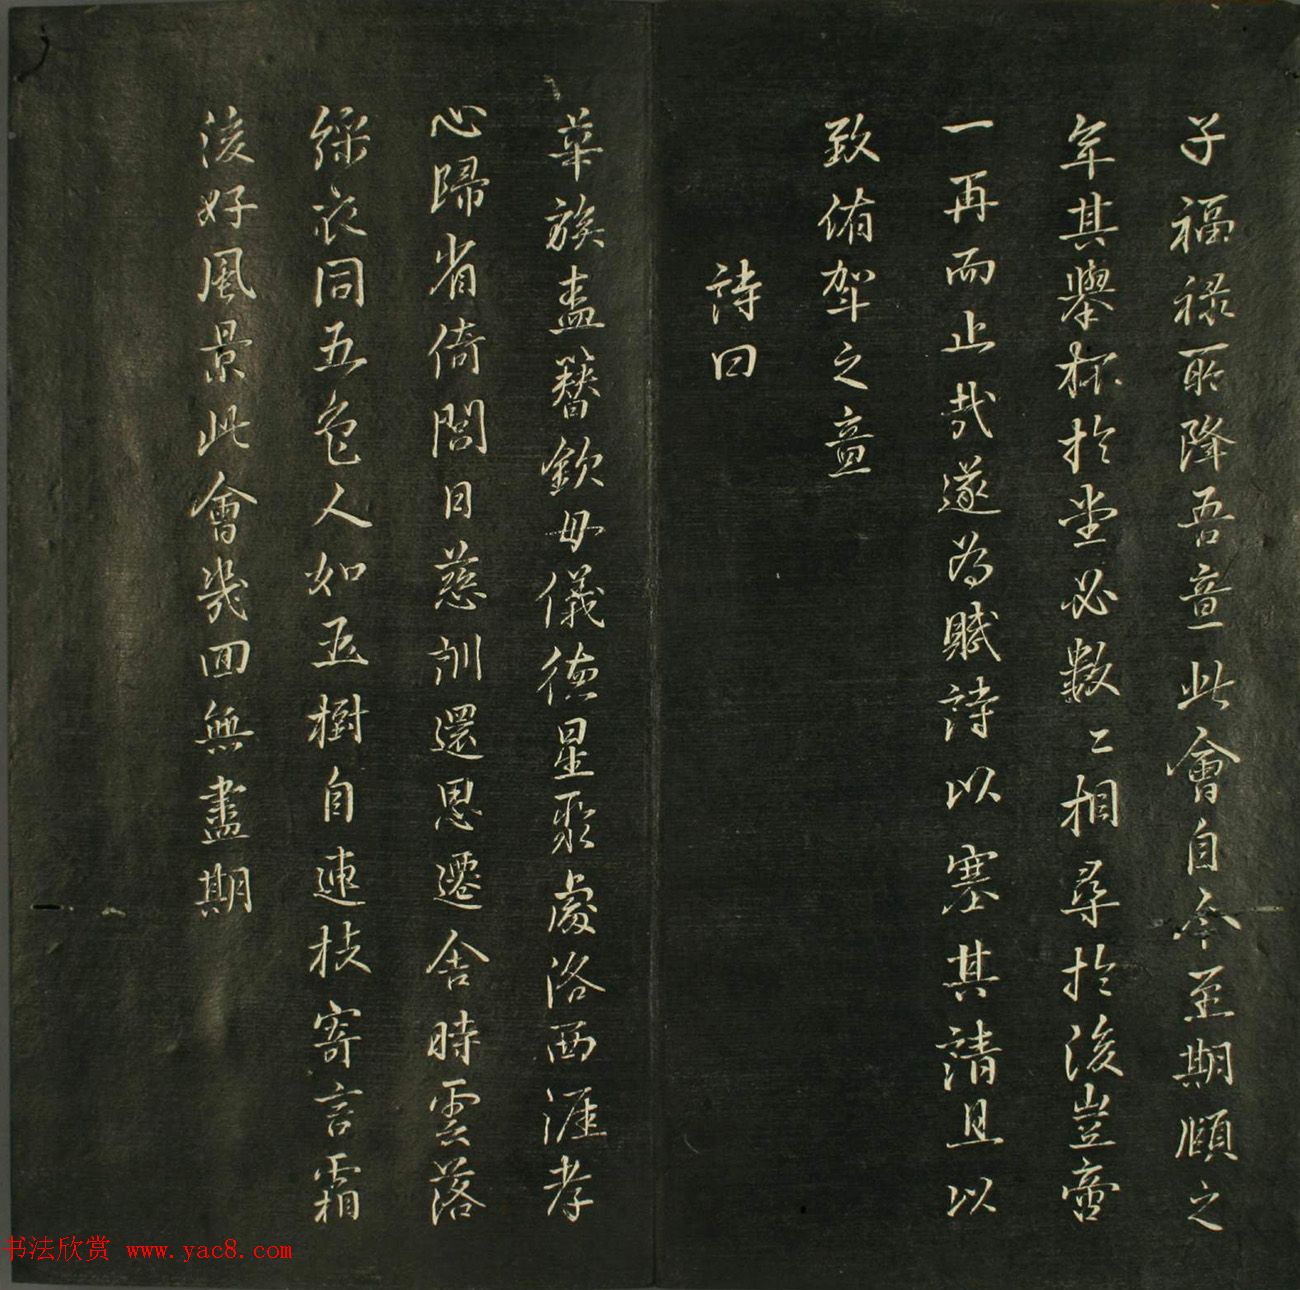 子福祿所降吾意此會自今至期頤之
年其舉杯於堂必數〻相尋於後豈啻
一再而止哉遂為賦詩以塞其請且以
致侑斝之意
詩曰
華族盍簪欽母儀德星聚處洛西涯孝
心歸省倚閭日慈訓還思遷舍時雲落
綵衣同五色人如玉樹自連枝寄言霜
後好風景此會幾回無盡期
书法欣赏 www.yac8.com